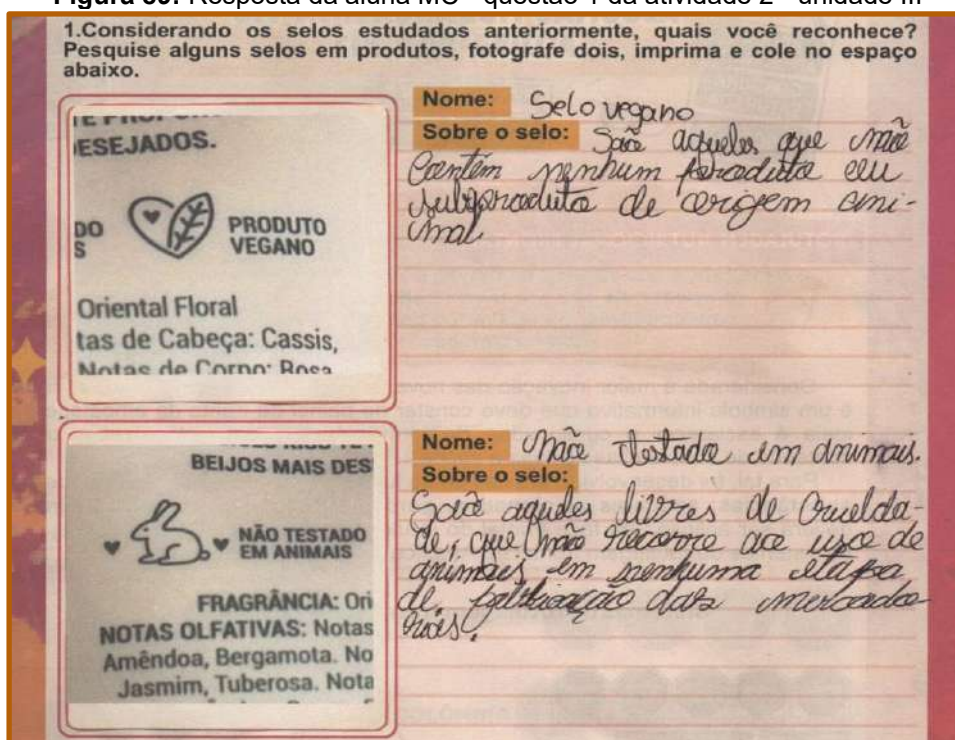 1.Considerando os selos estudados anteriormente, quais você reconhece?
Pesquise alguns selos em produtos, fotografe dois, imprima e cole no espaço
abaixo.
ESEJADOS.
DO
S
PRODUTO
VEGANO
Oriental Floral
tas de Cabeça: Cassis,
Notas de Corpo: Rosa
Nome: Selo vegano
Sobre o selo: São aqueles que não
contém nenhum produto ou
subproduto de origem ani-
mal
BEIJOS MAIS DES
NÃO TESTADO
EM ANIMAIS
FRAGRÂNCIA: Ori
NOTAS OLFATIVAS: Notas
Amêndoa, Bergamota. No
Jasmim, Tuberosa. Nota
Nome: Não testado em animais.
Sobre o selo:
São aqueles livres de Cruelda-
de, que não recorre ao uso de
animais em nenhuma etapa
de fabricação das mercado
rias.